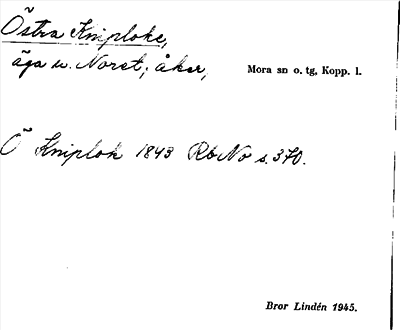 Östra Kniploke,
äga u. Noret; åker,
Mora sn o. tg, Kopp. l.
Ö Kniplok 1843 RbNo s. 370.
Bror Lindén 1945.